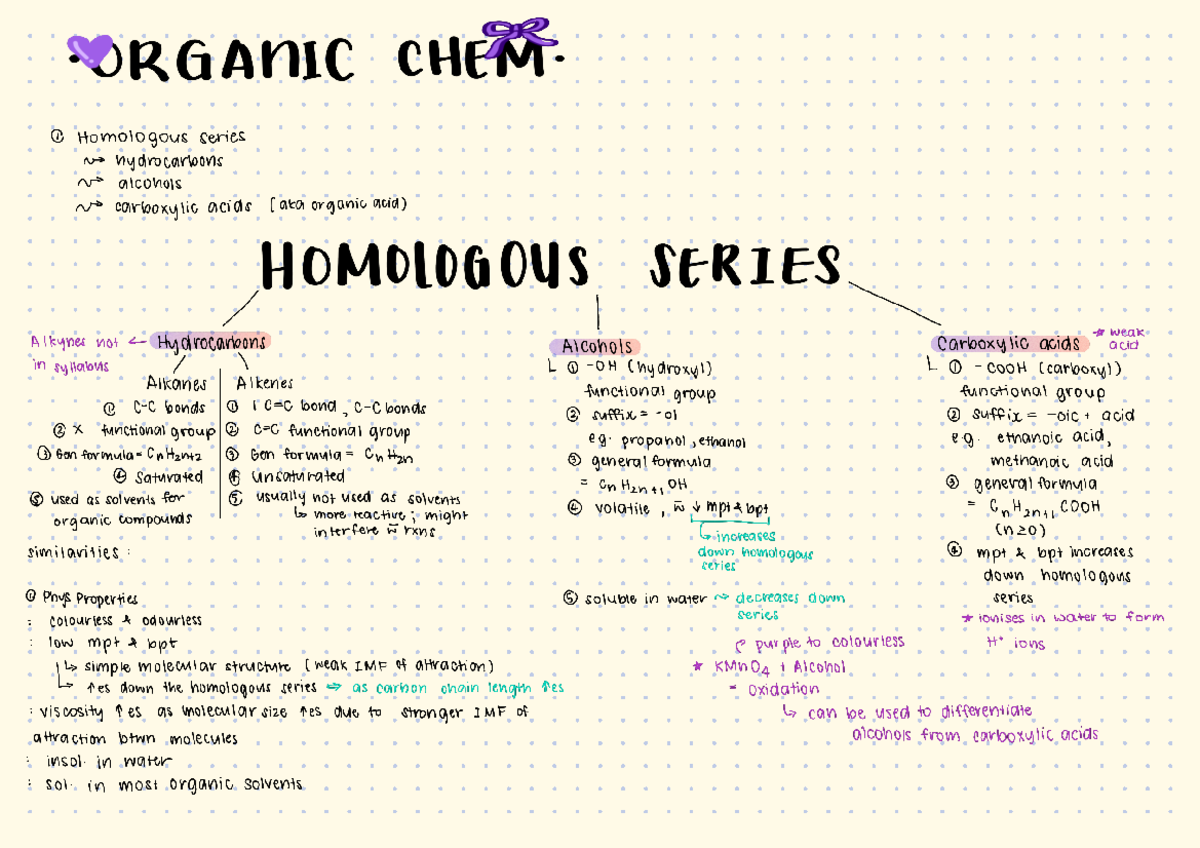 ORGANIC CHEM.
① Homologous series
↝ hydrocarbons
↝ alcohols
↝ carboxylic acids [aka organic acid)
HOMOLOGOUS SERIES
Alkynes not ← Hydrocarbons
in syllabus
Alkanes
① C-C bonds
② × functional group
③ Gen formula = CnH2n+2
④ Saturated
⑤ used as solvents for
organic compounds
Alkenes
① 1 C=C bond, C-C bonds
② C=C functional group
③ Gen formula = CnH2n
④ Unsaturated
⑤ usually not used as solvents
↳ more reactive; might
interfere w̄ rxns
similarities :
① Phys Properties
: colourless & odourless
: low mpt & bpt
↳ simple molecular structure (weak IMF of attraction)
↳ ↑es down the homologous series ⇔ as carbon chain length ↑es
: viscosity ↑es as molecular size ↑es due to stronger IMF of
attraction btwn molecules
: insol. in water
: sol. in most organic solvents
Alcohols
① -OH (hydroxyl)
functional group
② suffix = -ol
eg. propanol, ethanol
③ general formula
= CnH2n+1OH
④ volatile, w̄ ↓ mpt & bpt
↳ increases
down homologous
series
⑤ soluble in water ↝ decreases down
series
purple to colourless
* KMnO4 + Alcohol
= Oxidation
↳ can be used to differentiate
alcohols from carboxylic acids
Carboxylic acids * weak
acid
① -COOH (carboxyl)
functional group
② suffix = -oic + acid
eg. ethanoic acid,
methanoic acid
③ general formula
= CnH2n+1COOH
(n≥0)
④ mpt & bpt increases
down homologous
series
* ionises in water to form
H⁺ ions